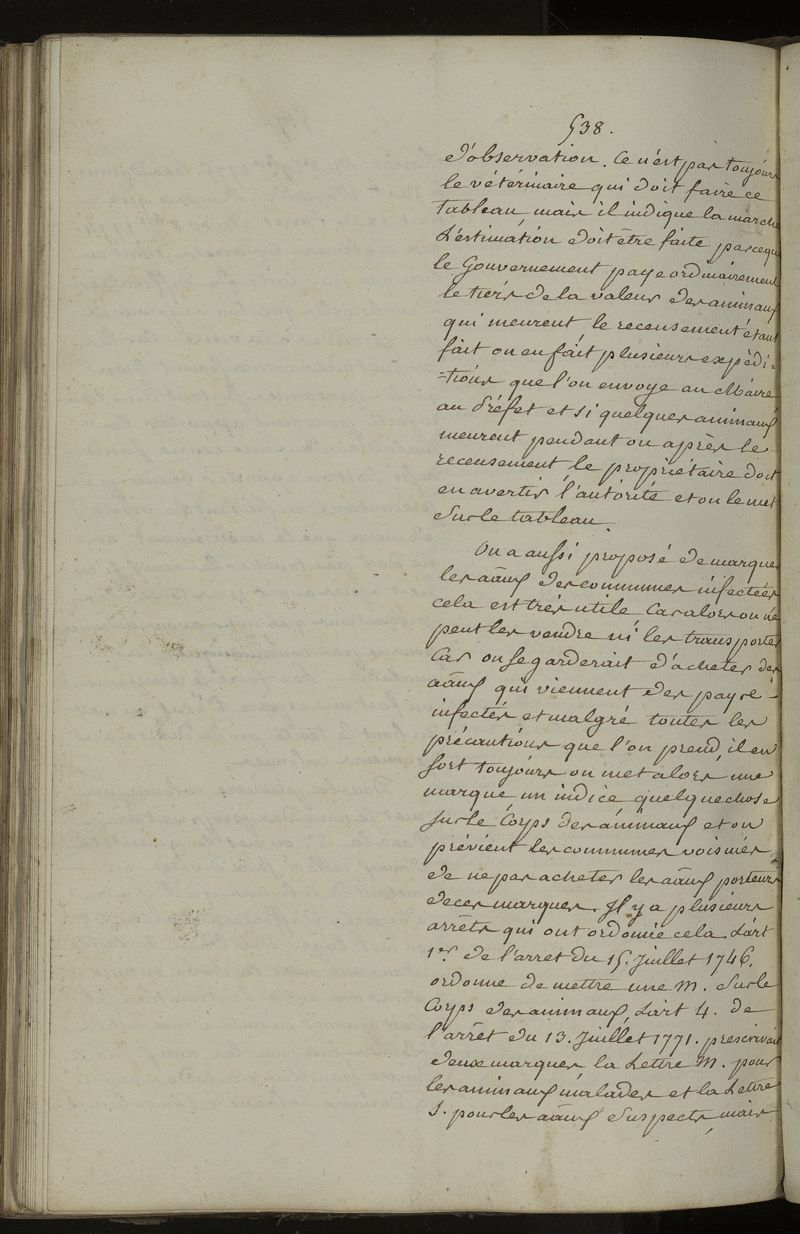 538.
d'observation. Ce n'est pas toujours
le vétérinaire qui doit faire ce
tableau, mais il indique la marche
L'estimation doit être faite parceque
le Gouvernement paye ordinairement
le tiers de la valeur des animaux
qui meurent, le recensement étant
fait on en fait plusieurs expédi=
=tions que l'on envoye au Maire
au Préfet et si quelques animaux
meurent pendant ou après le
recensement, le propriétaire doit
en avertir l'autorité et on le met
sur le tableau.
On a aussi proposé de marquer
les aãux des communes infectées
cela est très utile car alors on ne
peut les vendre ni les transporter
car on se garderait d'acheter des
aãux qui viennent des pays
infectés et malgré toutes les
précautions que l'on prend, il en
sort toujours on met alors, une
marque, un indice quelque chose
sur le Corps des animaux et on
prévient les communes voisines
de ne pas acheter les aãux porteurs
de ces marques. Il y a plusieurs
arrêts qui ont ordonné cela. L'art
1er. de l'arret du 15. Juillet 1746,
ordonne de mettre une M. sur le
Corps des animaux, L'art 4. de
l'arrêt du 13. Juillet 1771. prescrivait
deux marques la Lettre M. pour
les animaux malades et la Lettre
S. pour les aãux suspects, mais